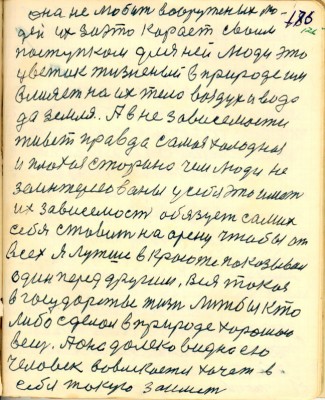 она не любит вооруженых лю- 186
дей их за это карает своим
поступком для ней люди это
цветок жизненый в природе им
влияет на их тело воздух и вода
да земля. А в не зависемости
живет правда самая холодная
и плохая сторино чем люди не
заинтересованы у себя это имет
их зависемост обязует самих
себя ставит на арену чтобы от
всех я лутше в красоте показывал
один перед другим. Вся такая
в государстве жизн лишбы кто
либо сделал в природе хорошою
вещ. А она далеко видно ею
человек вовликается хочет в
себя такую занимат